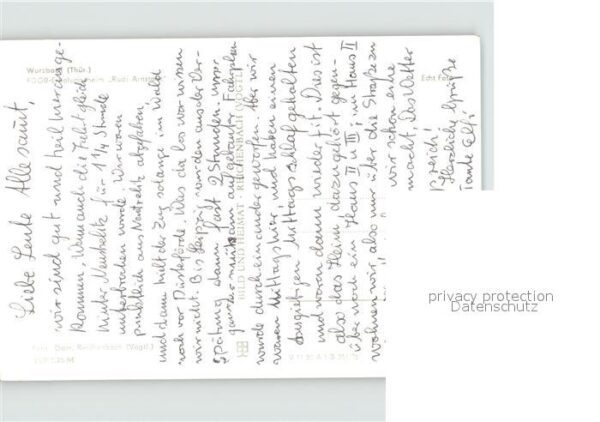 Wurzbach (Thür.)
FDGB-Erholungsheim "Rudi Arnstadt"
Echt Foto
Liebe Leute Allesamt,
wir sind gut und heil hier angekommen, wenn auch die Fahrt gleich
hinter Neustrelitz für 1 1/4 Stunde
unterbrochen wurde. Wir waren
pünktlich aus Neustrelitz abgefahren
und dann hielt der Zug solange im Wald
noch vor Düsterförde. Was da los war wissen
wir nicht. Bis Leipzig wurden aus der Ver-
spätung dann fast 2 Stunden. Unser
ganzer mühsam aufgebauter Fahrplan
wurde durcheinandergeworfen. Aber wir
waren Mittags hier und haben einen
ausgiebigen Mittagsschlaf gehalten
und waren dann wieder fit. Dies ist
also das Heim dazu gehört gegen-
über noch ein Haus II u III; im Haus II
wohnen wir, also nur über die Straße zu
wir schon eine
macht. Das Wetter
Herzliche Grüße
Tante Elfi
BILD UND HEIMAT REICHENBACH (VOGTL)
privacy protection
Datenschutz